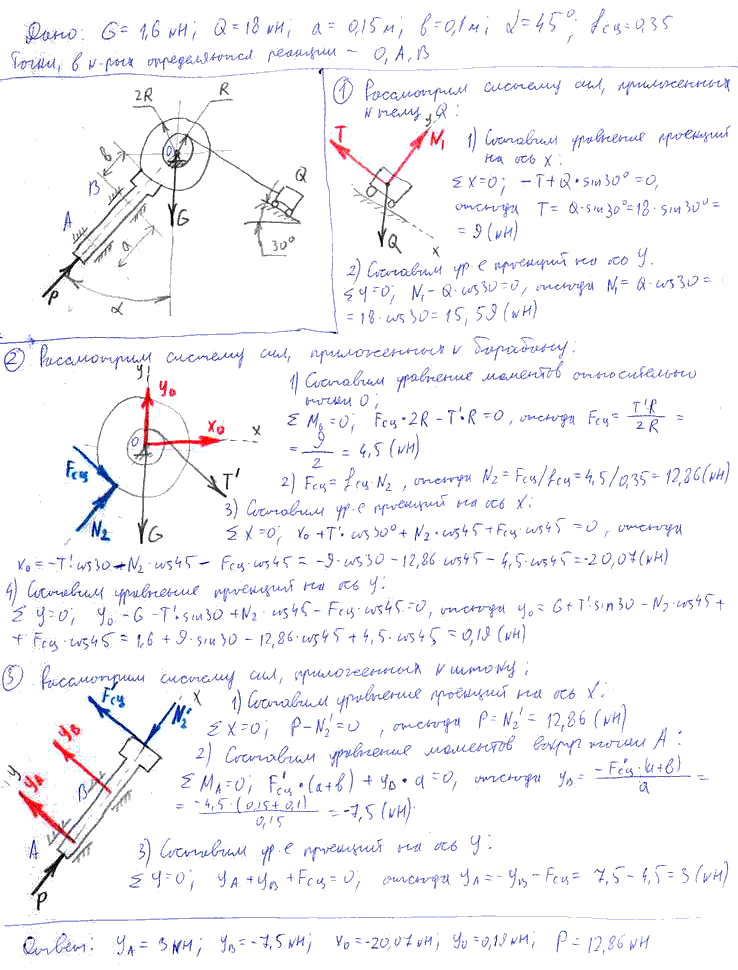 Дано: G = 1,6 кН; Q = 18 кН; a = 0,15 м; в = 0,1 м; α = 45°; fсц = 0,35
Точки, в к-рых определяются реакции – О, А, В
2R R
в
О
В
А
G
Q
a
30°
P
α
① Рассмотрим систему сил, приложенных
к телу Q:
y
T N₁
Q
x
1) Составим уравнение проекций
на ось x:
Σ X=0; -T+Q·sin30°=0,
отсюда T = Q·sin30°=18·sin30°=
= 9 (кН)
2) Составим ур-е проекций на ось y.
Σ y=0; N₁-Q·cos30=0, отсюда N₁= Q·cos30=
= 18·cos30= 15,59 (кН)
② Рассмотрим систему сил, приложенных к барабану:
y
Y₀
О
X₀
x
Fсц
N₂
T'
G
1) Составим уравнение моментов относительно
точки О;
Σ M₀=0; Fсц·2R - T'·R = 0, отсюда Fсц = T'R/2R =
= 9/2 = 4,5 (кН)
2) Fсц = fсц·N₂, отсюда N₂ = Fсц/fсц = 4,5/0,35 = 12,86 (кН)
3) Составим ур-е проекций на ось x:
Σ X=0; x₀+T'·cos30°+N₂·cos45+Fсц·cos45 = 0, отсюда
x₀ = -T'·cos30-N₂·cos45- Fсц·cos45 = -9·cos30-12,86·cos45-4,5·cos45=-20,07(кН)
4) Составим уравнение проекций на ось y:
Σ y=0; y₀-G-T'·sin30+N₂·cos45-Fсц·cos45=0, отсюда y₀= G+T'sin30-N₂·cos45+
+ Fсц·cos45 = 1,6+9·sin30-12,86·cos45+4,5·cos45 = 0,19 (кН)
③ Рассмотрим систему сил, приложенных к штоку;
F'сц
x
N₂'
Y_B
y
Y_A
В
А
P
1) Составим уравнение проекций на ось x:
Σ X=0; P-N₂'=0, отсюда P=N₂'= 12,86 (кН)
2) Составим уравнение моментов вокруг точки А:
Σ M_A=0; F'сц·(a+в)+y_B·a=0, отсюда y_B = -F'сц·(a+в)/a =
= -4,5·(0,15+0,1)/0,15 = -7,5 (кН)
3) Составим ур-е проекций на ось y:
Σ y=0; y_A+y_B+Fсц=0; отсюда y_A=-y_B-Fсц= 7,5-4,5=3 (кН)
Ответ: y_A = 3 кН; y_B=-7,5 кН; x₀=-20,07 кН; y₀=0,19 кН; P = 12,86 кН